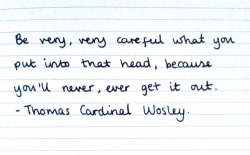 Be very, very careful what you
put into that head, because
you'll never, ever get it out.
- Thomas Cardinal Wosley.